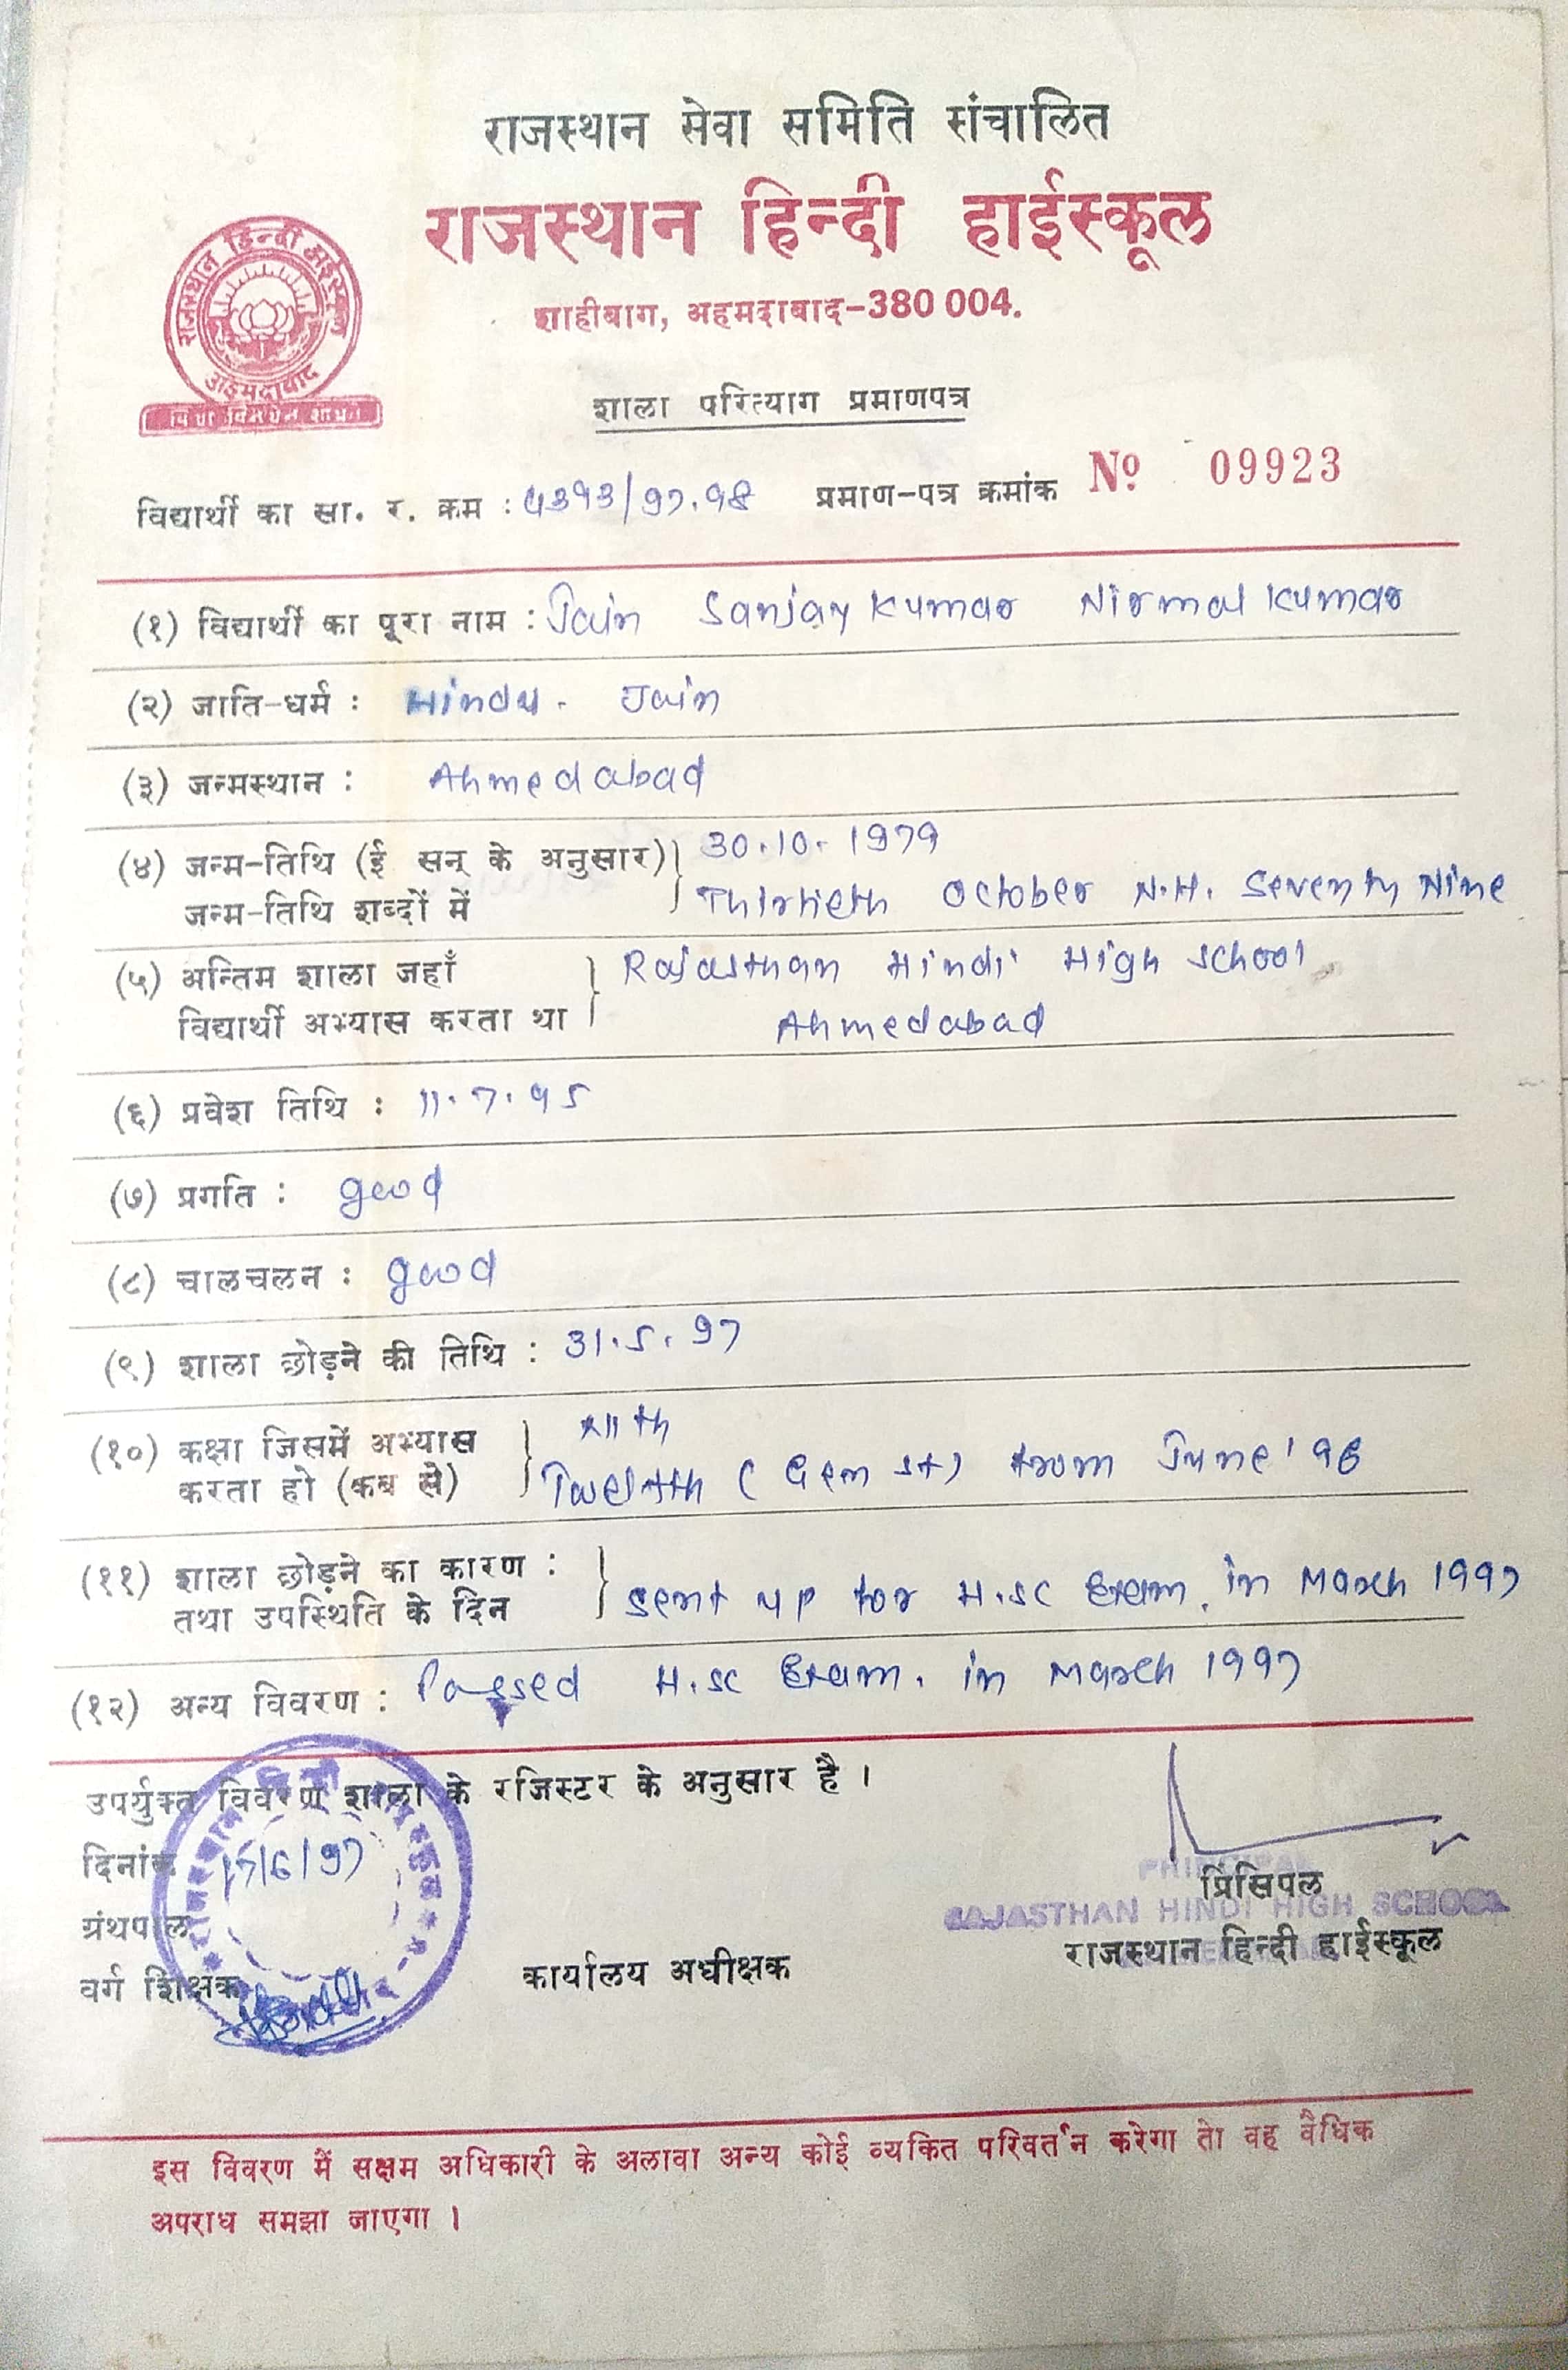 राजस्थान सेवा समिति संचालित
राजस्थान हिन्दी हाईस्कूल
राजस्थान हिन्दी हाईस्कूल
अहमदाबाद
शाहीबाग, अहमदाबाद-380 004.
शाला परित्याग प्रमाणपत्र
विद्यार्थी का सा. र. क्रम : 4393/97.98 प्रमाण-पत्र क्रमांक No 09923
(१) विद्यार्थी का पूरा नाम : Jain Sanjay Kumar Nirmal Kumar
(२) जाति-धर्म : Hindu - Jain
(३) जन्मस्थान : Ahmedabad
(४) जन्म-तिथि (ई सन् के अनुसार) 30.10.1979
जन्म-तिथि शब्दों में Thirtieth October N.H. Seventy Nine
(५) अन्तिम शाला जहाँ Rajasthan Hindi High School
विद्यार्थी अभ्यास करता था Ahmedabad
(६) प्रवेश तिथि : 11.7.95
(७) प्रगति : good
(८) चालचलन : good
(९) शाला छोड़ने की तिथि : 31.5.97
(१०) कक्षा जिसमें अभ्यास XII th
करता हो (कब से) Twelfth (Gen st) from June '96
(११) शाला छोड़ने का कारण :
तथा उपस्थिति के दिन sent up for H.sc Exam. in March 1997
(१२) अन्य विवरण : Passed H.sc Exam. in March 1997
उपर्युक्त विवरण शाला के रजिस्टर के अनुसार है ।
दिनांक /6/97
PRINCIPAL
प्रिंसिपल
RAJASTHAN HINDI HIGH SCHOOL
ग्रंथपाल
राजस्थान हिन्दी हाईस्कूल
वर्ग शिक्षक कार्यालय अधीक्षक
इस विवरण में सक्षम अधिकारी के अलावा अन्य कोई व्यकित परिवर्तन करेगा तो वह वैधिक
अपराध समझा जाएगा ।